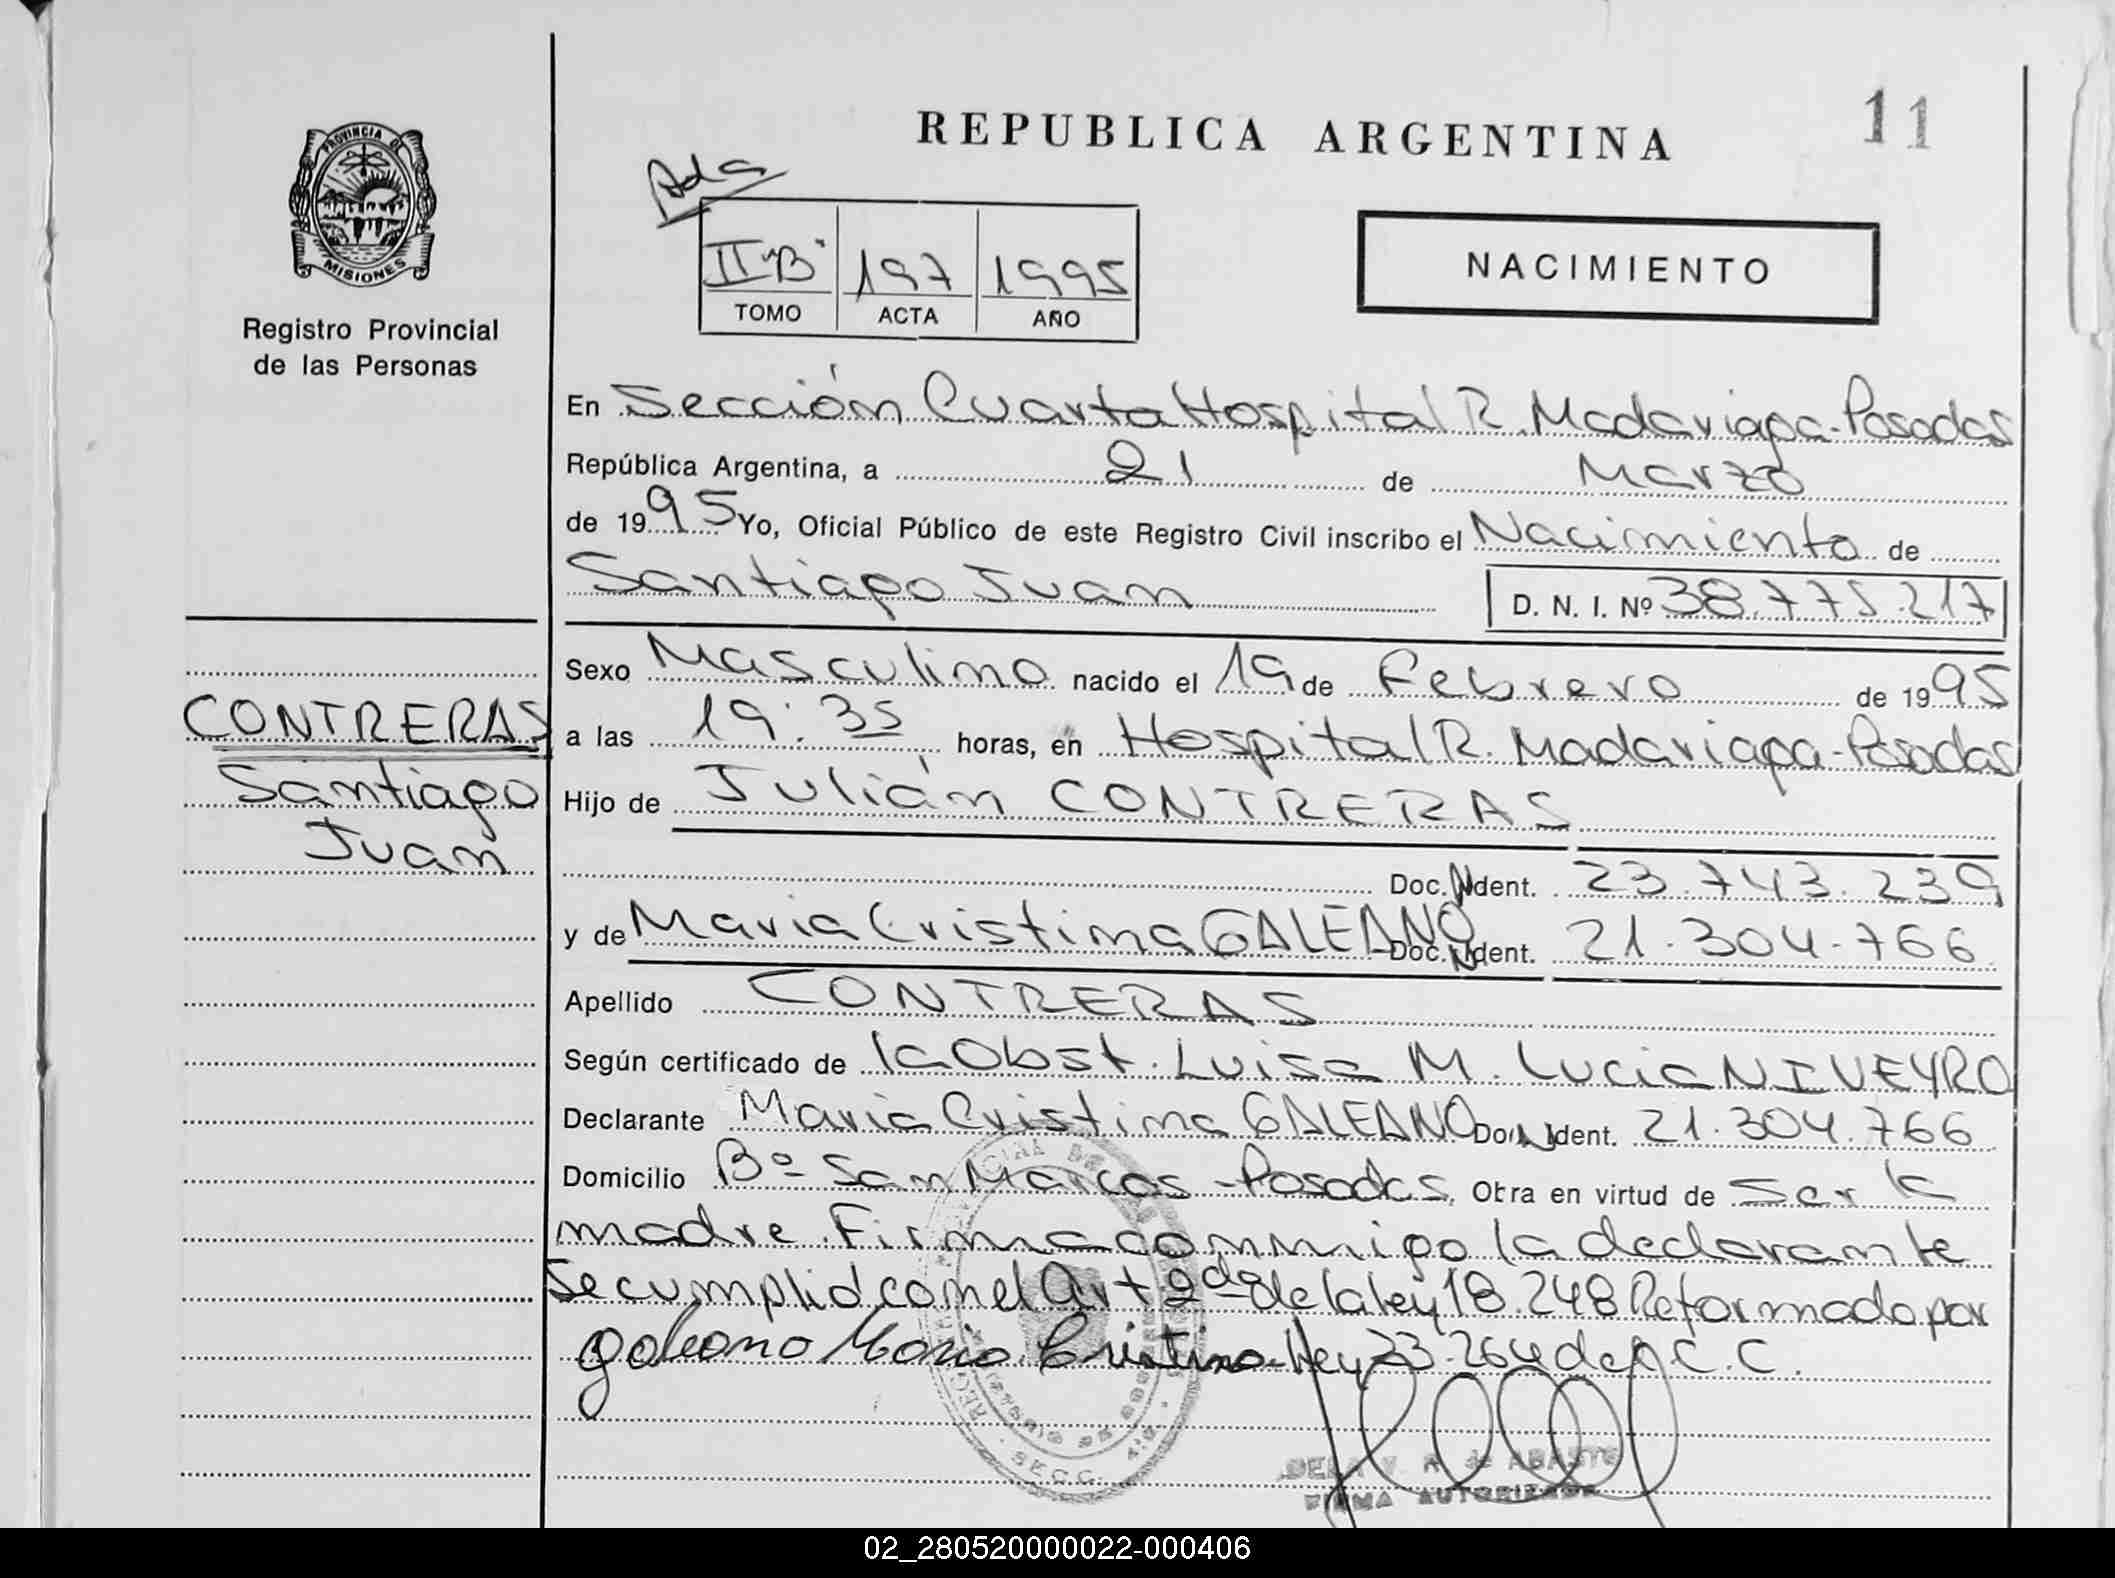 REPUBLICA ARGENTINA
11
PROVINCIA DE
MISIONES
Registro Provincial
de las Personas
Ada
II "B" 197 1995
TOMO ACTA AÑO
NACIMIENTO
En Sección Cuarta Hospital R. Madariaga - Posadas
República Argentina, a 21 de Marzo
de 1995 Yo, Oficial Público de este Registro Civil inscribo el Nacimiento de
Santiago Juan D. N. I. Nº 38.775.217
Sexo Masculino nacido el 19 de Febrero de 1995
CONTRERAS
Santiago
Juan
a las 19:35 horas, en Hospital R. Madariaga - Posadas
Hijo de Julián CONTRERAS
Doc. N Ident. 23.743.239
y de Maria Cristina GALEANO Doc. N Ident. 21.304.766
Apellido CONTRERAS
Según certificado de la Obst. Luisa M. Lucia NIVEYRO
Declarante Maria Cristina GALEANO Doc. N Ident. 21.304.766
Domicilio Bº San Marcos - Posadas, Obra en virtud de ser la
madre. Firma conmigo la declarante
Se cumplió con el Art 2do de la ley 18.248 Reformado por
galeano Maria Cristina ley 23.264 del C.C.
SECC.
de ABASTO
FIRMA AUTORIZADA
02_280520000022-000406